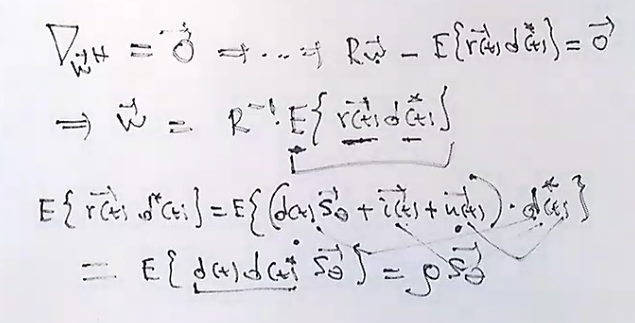 ∇_{w⃗^H} = 0⃗ ⇒ ... ⇒ R w⃗ - E{r⃗(t) d*(t)} = 0⃗
⇒ w⃗ = R^{-1} · E{r⃗(t) d*(t)}
E{r⃗(t) d*(t)} = E{(d(t) S⃗_θ + i⃗(t) + n⃗(t)) · d*(t)}
= E{d(t) d(t)* S⃗_θ} = ρ S⃗_θ